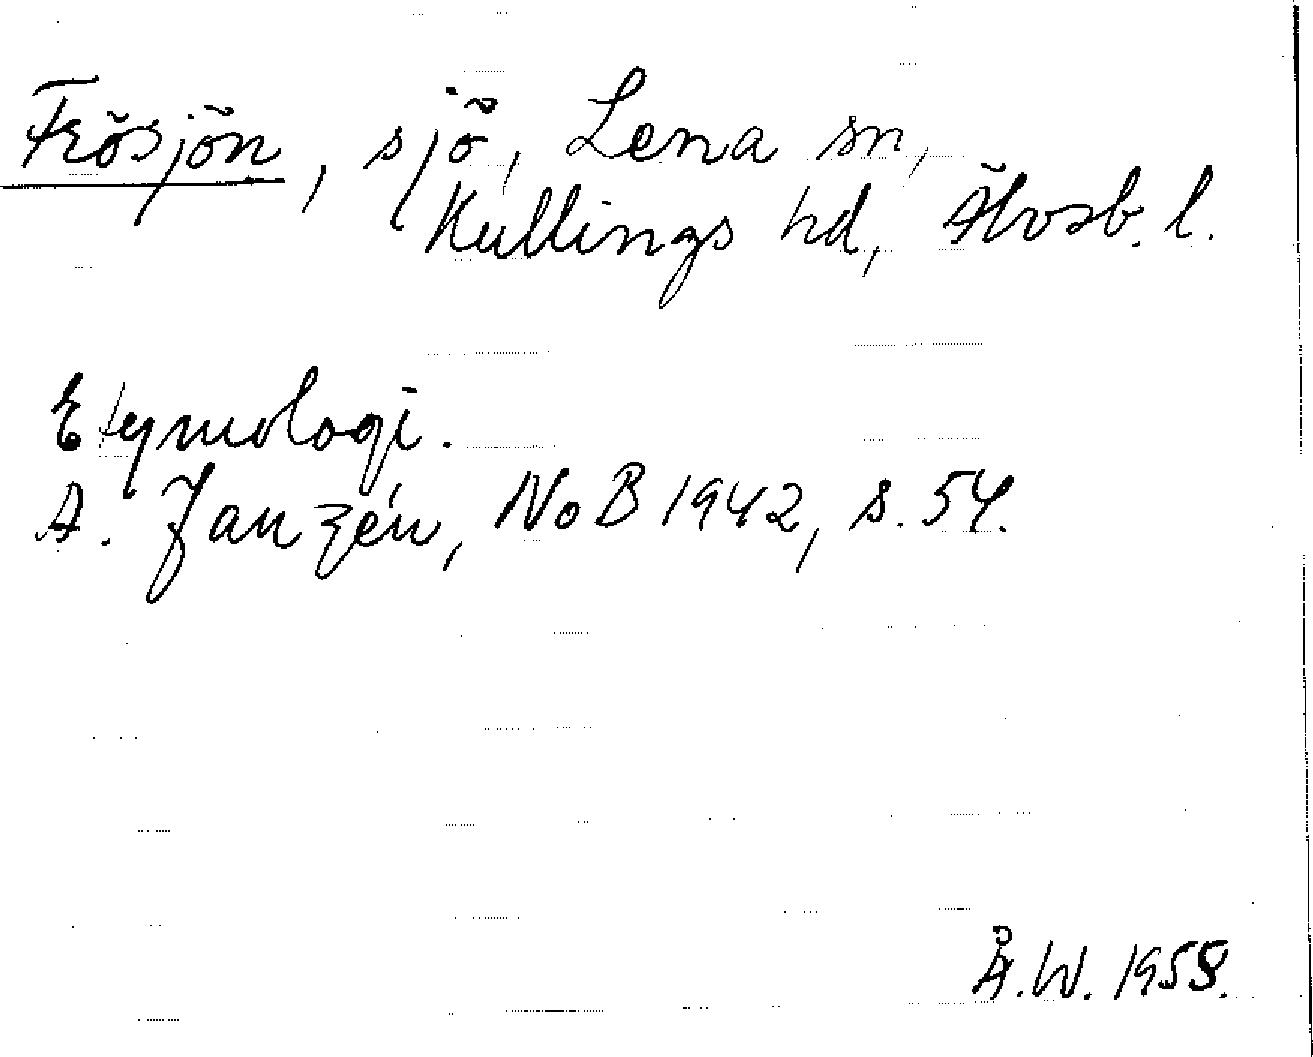 Frösjön, sjö, Lena sn,
Kullings hd, Älvsb. l.
Etymologi.
A. Janzén, NoB 1942, s. 54.
Å.W. 1958.